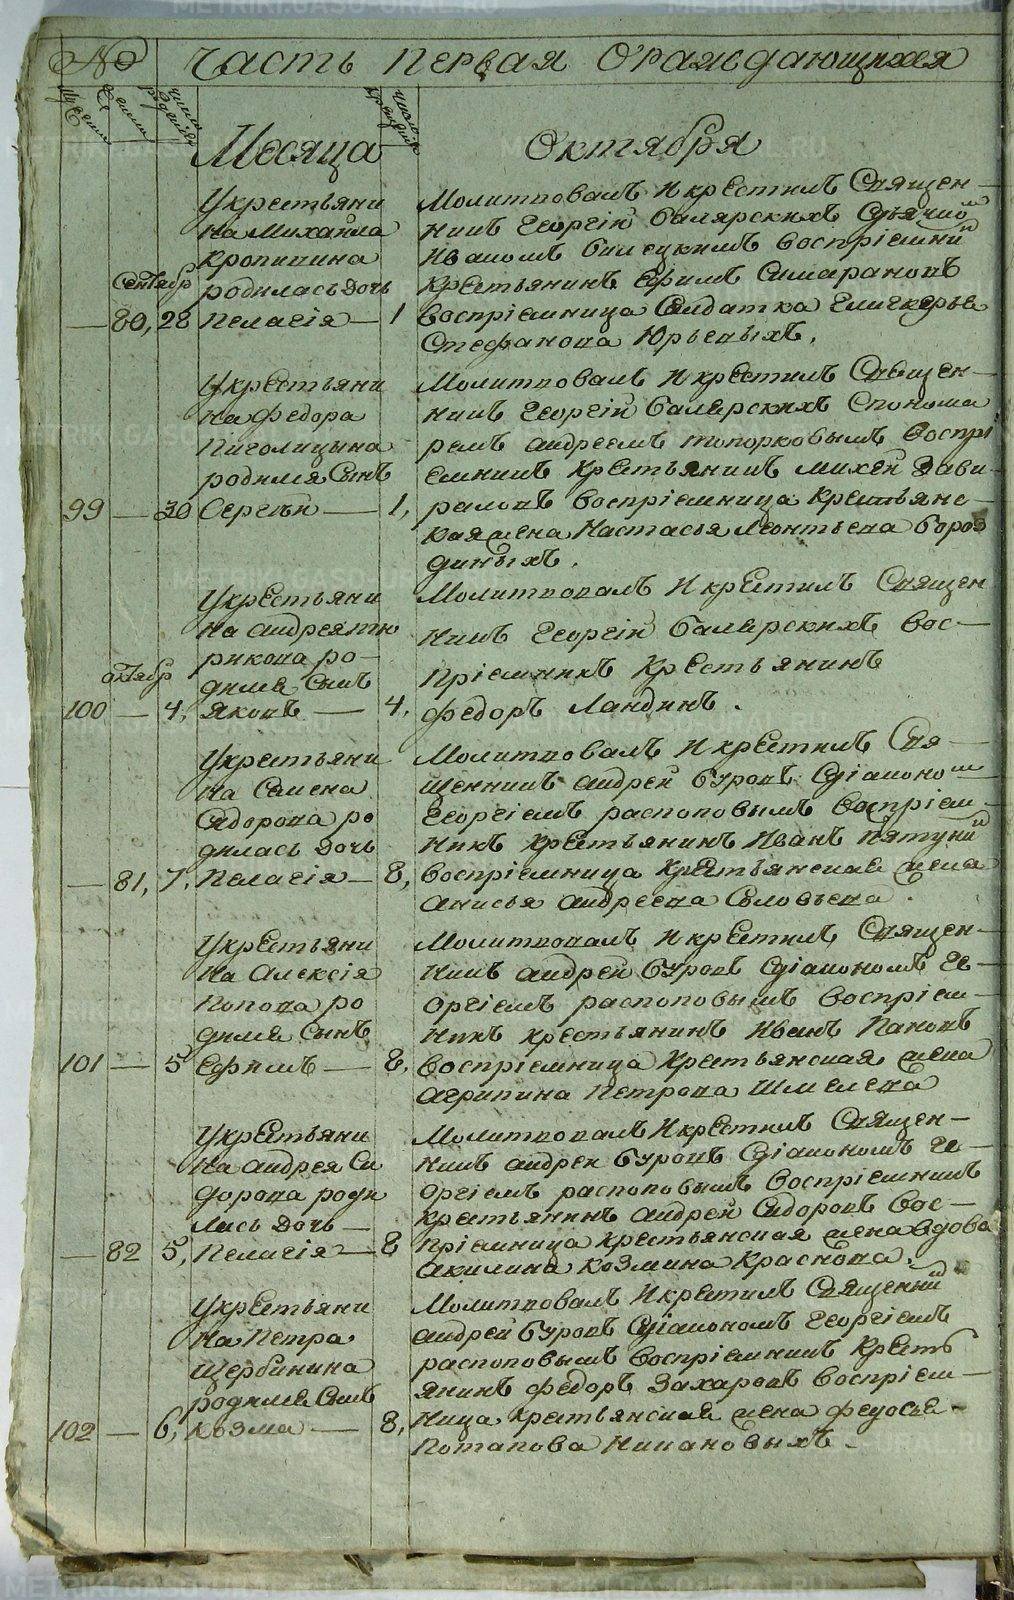 № Часть первая Ораждающихся
Мужеска Женска число родения число крещения
Месяца Октября
Укрестьяни
на Михайла
кропинина
Сентябр родилась дочь
— 80, 28 Пелагія — 1
Молитвовалъ И крестилъ Священ—
никъ Георгій балярскихъ Сдьячко
Иваномъ воспріемни
Крестьянинъ Ефимъ Симарановъ
Воспріемница Салдатка
Стефанова Юрьевыхъ.
Укрестьяни
на федора
Пиголицына
родился Сынъ
99 — 30 Сергѣй — 1,
Молитвовалъ И крестилъ Священ—
никъ Георгій балярскихъ Спонома
ремъ андреемъ топорковымъ Воспрі
емникъ Крестьянинъ михей
Воспріемница Крестьянс—
кая жена Настасья Леонтьева бороз
диныхъ.
Укрестьяни
на андрея тю
рикова ро—
октябр дился Сынъ
100 — 4, Яковъ — 4,
Молитвовалъ И крестилъ Священ
никъ Георгій балярскихъ Вос—
пріемникъ Крестьянинъ
федоръ Ландинъ.
Укрестьяни
на Семена
Сидорова ро
дилась Дочь
— 81, 7, Пелагія — 8,
Молитвовалъ И крестилъ Свя—
щенникъ андрей буровъ Сдіаконо
Георгіемъ распоповымъ Воспріем—
никъ крестьянинъ Иванъ пятуни
воспріемница Крестьянская жена
Анисья андреева Соловьева.
Укрестьяни
на Алексія
Попова ро
дился Сынъ
101 — 5 Ефимъ — 8,
Молитвовалъ И крестилъ Священ—
никъ андрей буровъ Сдіакономъ Ге—
оргіемъ распоповымъ Воспріем—
никъ крестьянинъ Иванъ Пановъ
Воспріемница Крестьянская жена
агрипина Петрова Шмелева
Укрестьяни
на андрея Си
дорова роди
лась дочь —
— 82 5, Пелагія — 8
Молитвовалъ И крестилъ Священ—
никъ андрей буровъ Сдіакономъ Ге—
оргіемъ распоповымъ Воспріемникъ
крестьянинъ андрей Сидоровъ Вос—
пріемница крестьянская жена вдова
акилина козмина Краснова.
Укрестьяни
на Петра
Щербинина
родился Сынъ
102 — 6, Козма — 8,
Молитвовалъ И крестилъ Священый
андрей буровъ Сдіакономъ Георгіемъ
распоповымъ Воспріемникъ Кресть
янинъ федоръ Захаровъ Воспріем—
ница крестьянская жена федосья
Потапова